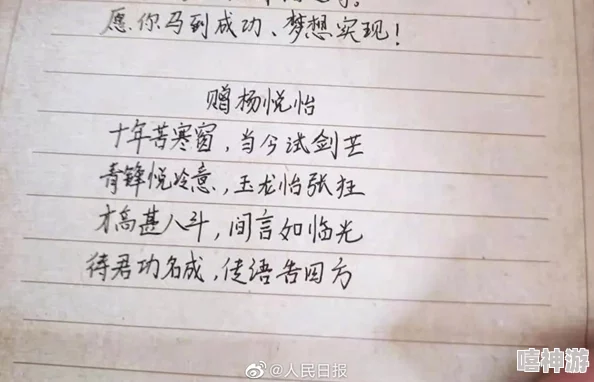 愿你马到成功、梦想实现！
赠杨悦怡
十年苦寒窗，当今试剑芒
青锋悦冷意，玉龙怡张狂
才高甚八斗，间言如临光
待君功名成，传语告四方
@人民日报
嘻神游